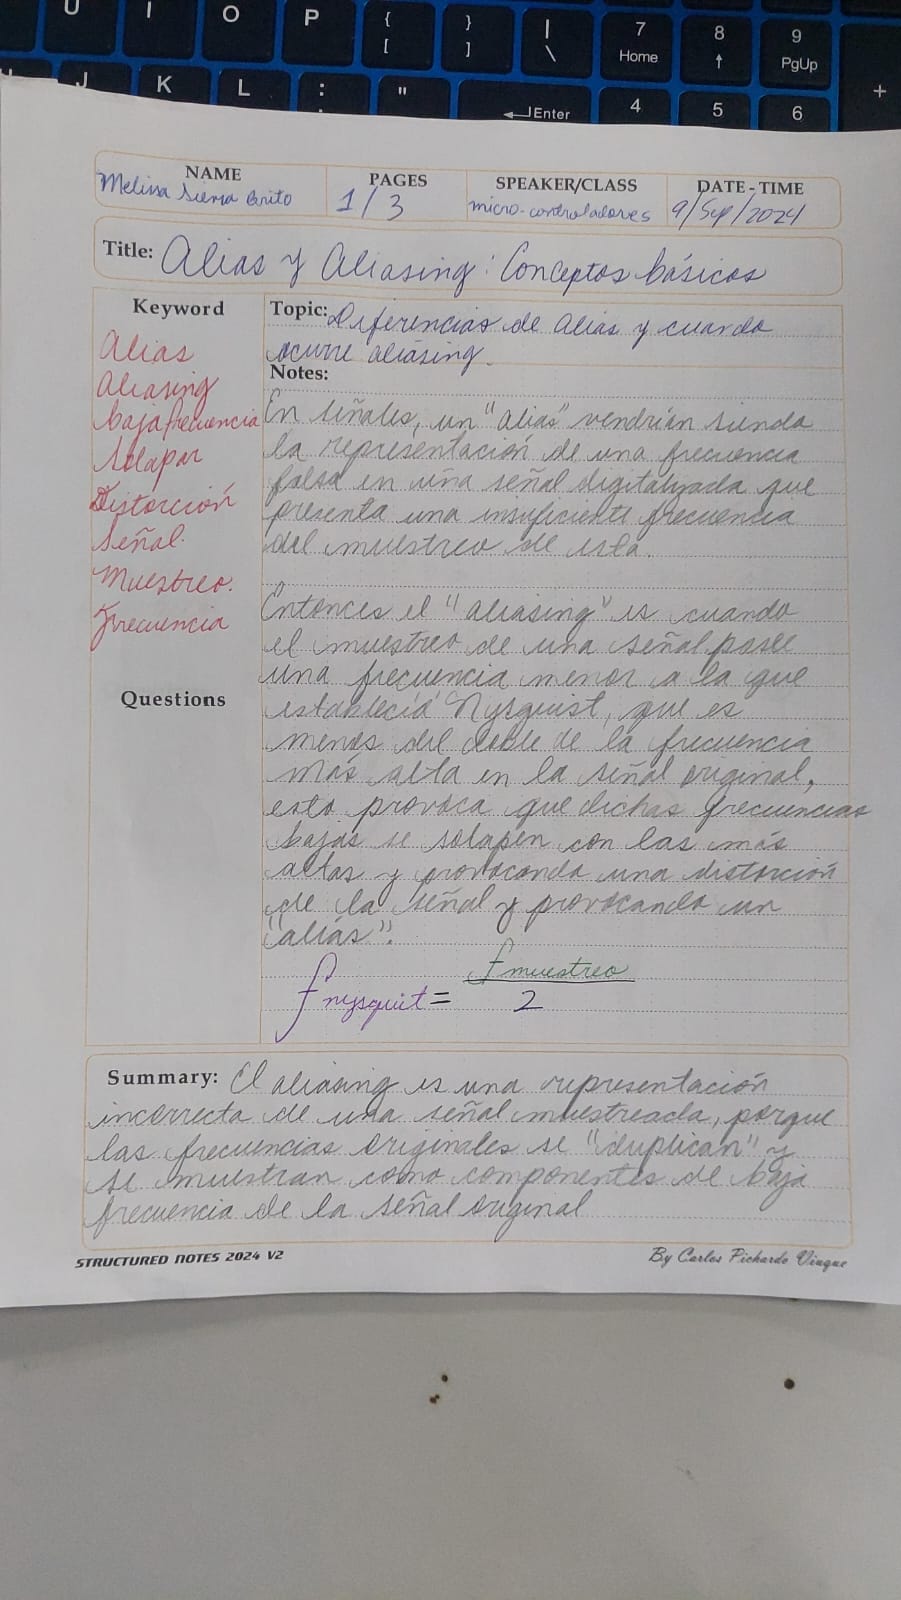 U I O P { [ } ] | \ 7 Home 8 ↑ 9 PgUp
J K L : " ↵Enter 4 5 6 +
NAME PAGES SPEAKER/CLASS DATE - TIME
Melissa Sierra Brito 1/3 micro-controladores 9/Sep/2024
Title: Alias y Aliasing: Conceptos básicos
Keyword
Alias
Aliasing
baja frecuencia
Solapar
Distorción
Señal.
Muestreo.
Frecuencia
Questions
Topic: Diferencias de alias y cuando
ocurre aliasing.
Notes:
En señales, un "alias" vendrían siendo
la representación de una frecuencia
falsa en una señal digitalizada que
presenta una insuficiente frecuencia
del muestreo de esta.
Entonces el "aliasing" es cuando
el muestreo de una señal posee
una frecuencia menor a la que
establecía Nysquist, que es
menos del doble de la frecuencia
más alta en la señal original,
esto provoca que dichas frecuencias
bajas se solapen con las más
altas y provocando una distorción
de la señal y provocando un
"aliás".
f nysquit = f muestreo / 2
Summary: El aliasing es una representación
incorrecta de una señal muestreada, porque
las frecuencias originales se "duplican" y
se muestran como componentes de baja
frecuencia de la señal original
STRUCTURED NOTES 2024 V2 By Carlos Pichardo Viuque